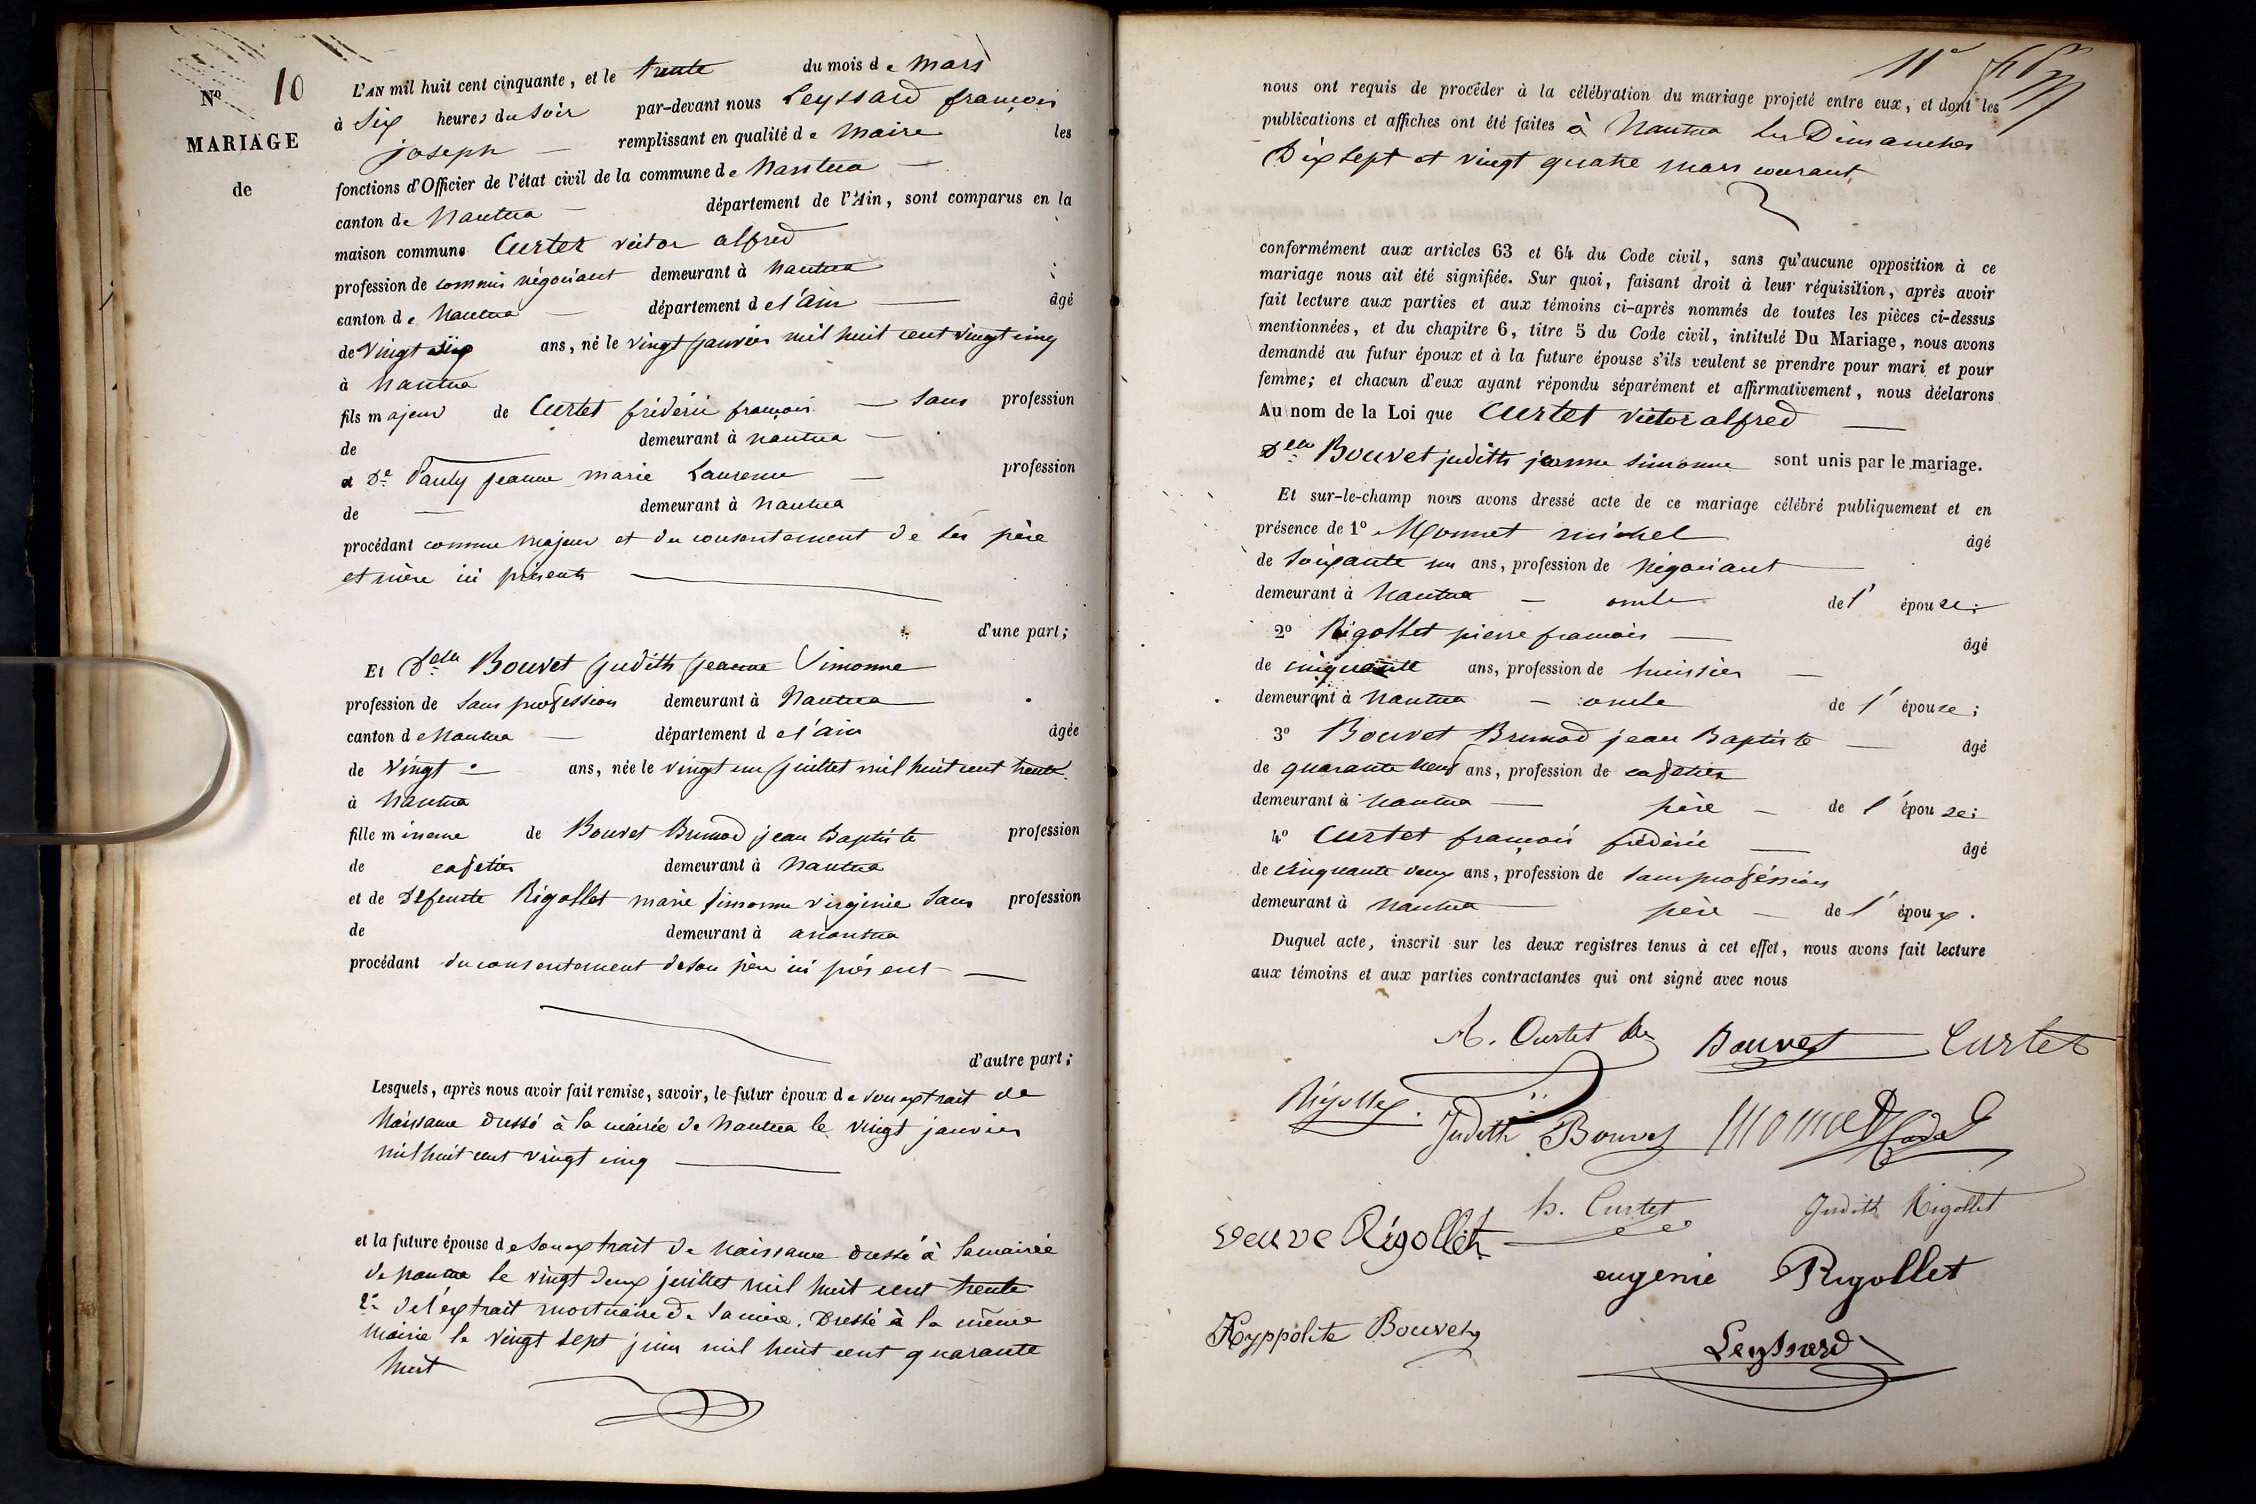 Nº 10
MARIAGE
de
L'AN mil huit cent cinquante, et le trente du mois de Mars
à Six heures du Soir par-devant nous Leyssard françois
joseph — remplissant en qualité de Maire les
fonctions d'Officier de l'état civil de la commune de Nantua —
canton de Nantua — département de l'Ain, sont comparus en la
maison commune Curtet victor alfred
profession de commis négociant demeurant à Nantua
canton de Nantua — département de l'ain — âgé
de Vingt ans, né le vingt janvier mil huit cent vingt cinq
à Nantua
fils majeur de Curtet fréderic françois — Sans profession
de demeurant à nantua —
et De Pauly jeanne marie Laurence — profession
de — demeurant à Nantua
procédant comme majeur et du consentement de ses père
et mère ici présents —
d'une part;
Et Delle Bouvet judith jeanne Simonne
profession de Sans profession demeurant à Nantua
canton de Nantua — département de l'ain âgée
de Vingt — ans, née le vingt un juillet mil huit cent trente
à Nantua
fille mineure de Bouvet Brunod jean Baptiste profession
de cafetier demeurant à Nantua
et de Défunte Rigollet marie Simonne virginie Sans profession
de demeurant à anantua
procédant du consentement de son père ici présent —
d'autre part;
Lesquels, après nous avoir fait remise, savoir, le futur époux de son extrait de
Naissance dressé à la mairie de Nantua le vingt janvier
mil huit cent vingt cinq —
et la future épouse de son extrait de naissance dressé à la mairie
de nantua le vingt deux juillet mil huit cent trente
2º de l'extrait mortuaire de sa mère. Dressé à la même
Mairie le vingt sept juin mil huit cent quarante
huit
11e
nous ont requis de procéder à la célébration du mariage projeté entre eux, et dont les
publications et affiches ont été faites à Nantua les Dimanches
Dix sept et vingt quatre mars courant,
conformément aux articles 63 et 64 du Code civil, sans qu'aucune opposition à ce
mariage nous ait été signifiée. Sur quoi, faisant droit à leur réquisition, après avoir
fait lecture aux parties et aux témoins ci-après nommés de toutes les pièces ci-dessus
mentionnées, et du chapitre 6, titre 5 du Code civil, intitulé Du Mariage, nous avons
demandé au futur époux et à la future épouse s'ils veulent se prendre pour mari et pour
femme; et chacun d'eux ayant répondu séparément et affirmativement, nous déclarons
Au nom de la Loi que Curtet victor alfred —
Delle Bouvet judith jeanne simonne sont unis par le mariage.
Et sur-le-champ nous avons dressé acte de ce mariage célébré publiquement et en
présence de 1º Monnet michel âgé
de Soixante un ans, profession de Négociant —
demeurant à Nantua — oncle de l' épouse;
2º Rigollet pierre françois — âgé
de cinquante ans, profession de huissier —
demeurant à Nantua — oncle de l' épouse;
3º Bouvet Brunod jean Baptiste — âgé
de quarante neuf ans, profession de cafetier
demeurant à Nantua — père — de l' épouse;
4º Curtet françois fréderic — âgé
de Cinquante deux ans, profession de Sans profession
demeurant à Nantua — père — de l' époux.
Duquel acte, inscrit sur les deux registres tenus à cet effet, nous avons fait lecture
aux témoins et aux parties contractantes qui ont signé avec nous
A. Curtet Bouvet Curtet
Rigollet. Judith Bouvet Monnet
veuve Rigollet h. Curtet Judith Rigollet
eugenie Rigollet
Hyppolite Bouvet
Leyssard